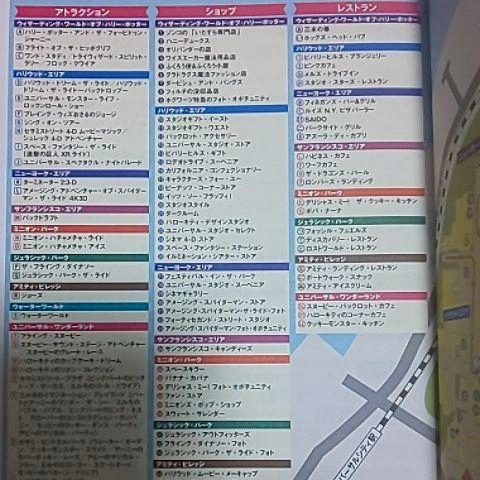 アトラクション
ウィザーディング・ワールド・オブ・ハリー・ポッター
ハリー・ポッター・アンド・ザ・フォービドゥン・
ジャーニー
フライト・オブ・ザ・ヒッポグリフ
ワンド・スタディ
ハリウッド・エリア
ハリウッド・ドリーム・ザ・ライド/ハリウッド・
ドリーム・ザ・ライド~バックドロップ~
ユニバーサル・モンスター・ライブ・
ロックンロール・ショー
プレイング・ウィズおさるのジョージ
シング・オン・ツアー
セサミストリート 4-D ムービーマジック
シュレック 4-D アドベンチャー
スペース・ファンタジー・ザ・ライド
ユニバーサル・スペクタクル・ナイトパレード
ニューヨーク・エリア
ターミネーター 2:3-D
アメイジング・アドベンチャー・オブ・スパイダー
マン・ザ・ライド 4K3D
サンフランシスコ・エリア
バックドラフト
ミニオン・パーク
ミニオン・ハチャメチャ・ライド
ミニオン・ハチャメチャ・アイス
ジュラシック・パーク
ザ・フライング・ダイナソー
ジュラシック・パーク・ザ・ライド
アミティ・ビレッジ
ジョーズ
ウォーターワールド
ウォーターワールド
ユニバーサル・ワンダーランド
フライング・スヌーピー
スヌーピー・サウンド・ステージ・アドベンチャー
スヌーピーのグレート・レース
ハローキティのカップケーキ・ドリーム
ハローキティのリボン・コレクション
ショップ
ウィザーディング・ワールド・オブ・ハリー・ポッター
ゾンコの「いたずら専門店」
ハニーデュークス
オリバンダーの店
ワイズエーカー魔法用品店
ふくろう便&ふくろう小屋
グラドラグス魔法ファッション店
ダービシュ・アンド・バングズ
フィルチの没収品店
ホグワーツ特急のフォト・オポチュニティ
ハリウッド・エリア
スタジオギフト・イースト
スタジオギフト・ウエスト
バックロット・アクセサリー
ユニバーサル・スタジオ・ストア
ビバリーヒルズ・ギフト
ロデオドライブ・スーベニア
カリフォルニア・コンフェクショナリー
キャラクターズ・フォー・ユー
ピーナッツ・コーナーストア
イッツ・ソー・フラッフィ!
スタジオスタイル
ダークルーム
ハローキティ・デザインスタジオ
ユニバーサル・スタジオ・セレクト
シネマ 4-D ストア
スペース・ファンタジー・ステーション
イルミネーション・シアター・ストア
ニューヨーク・エリア
フェスティバル・イン・ザ・パーク
ユニバーサル・スタジオ・スーベニア
シネマギャラリー
アメージング・スパイダーマン・ストア
アメージング・スパイダーマン・ザ・ライド・フォト
フォーティセカンド・ストリート・スタジオ
アメージング・スパイダーマン・フォト・オポチュニティ
サンフランシスコ・エリア
サンフランシスコ・キャンディーズ
ミニオン・パーク
スペースキラー
バナナ・カバナ
デリシャス・ミー! フォト・オポチュニティ
ファン・ストア
ミニオンズ・ポップ・ショップ
スウィート・サレンダー
ジュラシック・パーク
ジュラシック・アウトフィッターズ
フライング・ダイナソー・フォト
ジュラシック・パーク・ザ・ライド・フォト
アミティ・ビレッジ
ハリウッド・ムービー・メーキャップ
レストラン
ウィザーディング・ワールド・オブ・ハリー・ポッター
三本の箒
ホッグズ・ヘッド・パブ
ハリウッド・エリア
ビバリーヒルズ・ブランジェリー
ピンクカフェ
メルズ・ドライブイン
スタジオ・スターズ・レストラン
ニューヨーク・エリア
フィネガンズ・バー&グリル
ルイズ N.Y. ピザパーラー
SAIDO
パークサイド・グリル
アズーラ・ディ・カプリ
サンフランシスコ・エリア
ハピネス・カフェ
ワーフカフェ
ザ・ドラゴンズ・パール
ロンバーズ・ランディング
ミニオン・パーク
デリシャス・ミー! ザ・クッキー・キッチン
ポパ・ナーナ
ジュラシック・パーク
フォッシル・フュエルズ
ディスカバリー・レストラン
ロストワールド・レストラン
アミティ・ビレッジ
アミティ・ランディング・レストラン
ボードウォーク・スナック
アミティ・アイスクリーム
ユニバーサル・ワンダーランド
スヌーピー・バックロット・カフェ
ハローキティのコーナーカフェ
クッキーモンスター・キッチン
バーサルシティ駅